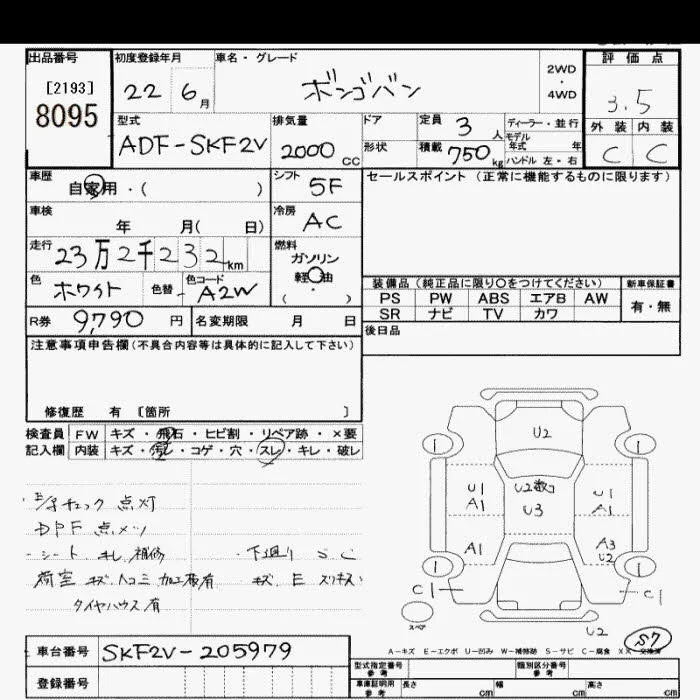 出品番号 初度登録年月 車名・グレード 2WD ・ 4WD 評価点
[2193] 8095 22 6月 ボンゴバン 3.5
型式 ADF-SKF2V 排気量 2000 cc ドア 形状 定員 3人 積載 750kg ディーラー・並行 モデル年式 年 ハンドル 左・右 外装 内装
C C
車歴 自家用・( ) シフト 5F セールスポイント(正常に機能するものに限ります)
車検 年 月( 日) 冷房 AC
走行 23万2千232km 燃料 ガソリン 軽油 ( ・ )
色 ホワイト 色替 色コード A2W
装備品(純正品に限り○をつけてください) 新車保証書
PS PW ABS エアB AW 有・無
SR ナビ TV カワ
R券 9,790円 名変期限 月 日 後日品
注意事項申告欄(不具合内容等は具体的に記入して下さい)
修復歴 有 [箇所 ]
検査員 FW キズ・飛石・ヒビ割・リペア跡・×要
記入欄 内装 キズ・汚レ・コゲ・穴・スレ・キレ・破レ
チェック 点灯
DPF 点メツ
シート キレ 補修 ・下廻り S C
荷室 キズ 加工板有 キズ E スリキズ
タイヤハウス有
U2
U1 A1 U2数コ U3 U1 A1
A1 A3 U2
C1 C1
スペア U2 S7
A-キズ E-エクボ U-凹み W-補修跡 S-サビ C-腐食 XX-交換済
車台番号 SKF2V-205979
登録番号
型式指定番号 参考 類別区分番号 参考
車庫証明用 参考 長さ cm 幅 cm 高さ cm